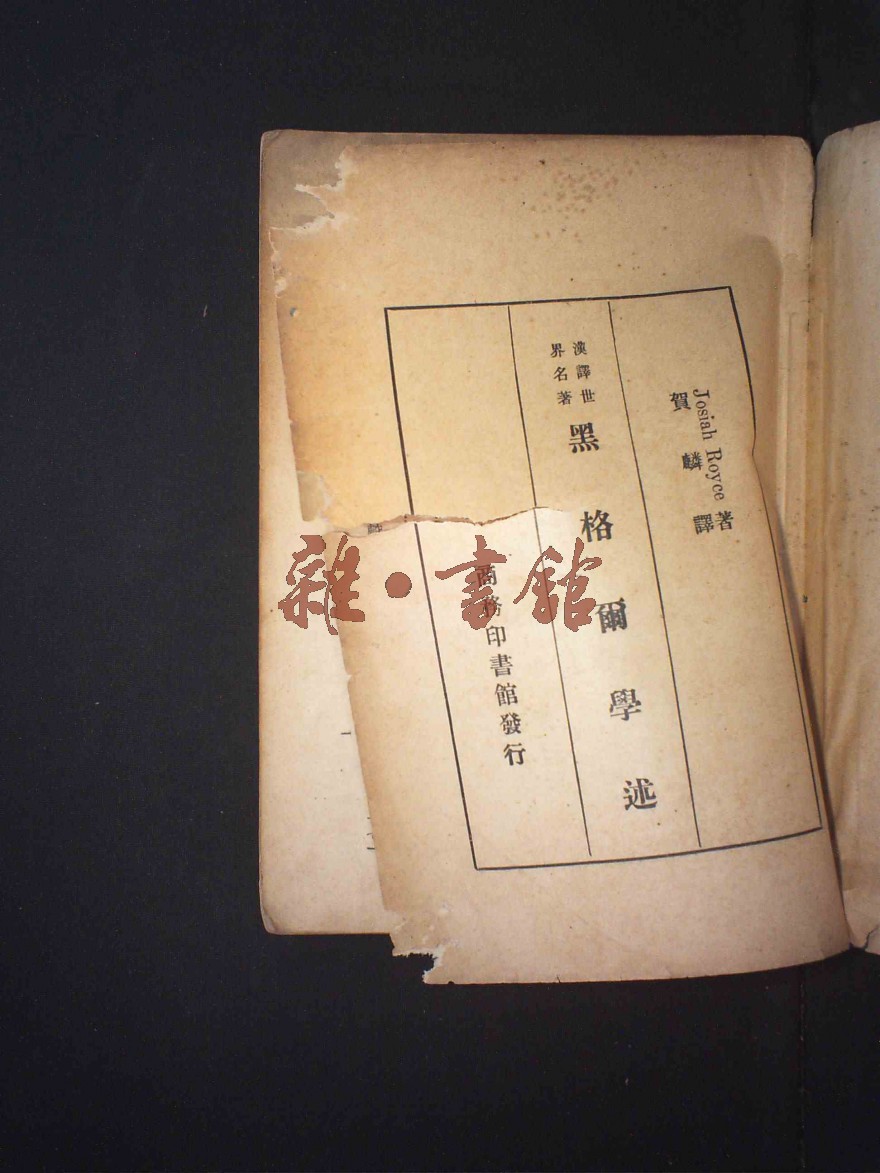 Josiah Royce 著
賀麟譯
漢譯世
界名著
黑格爾學述
商務印書館發行
雜·書館